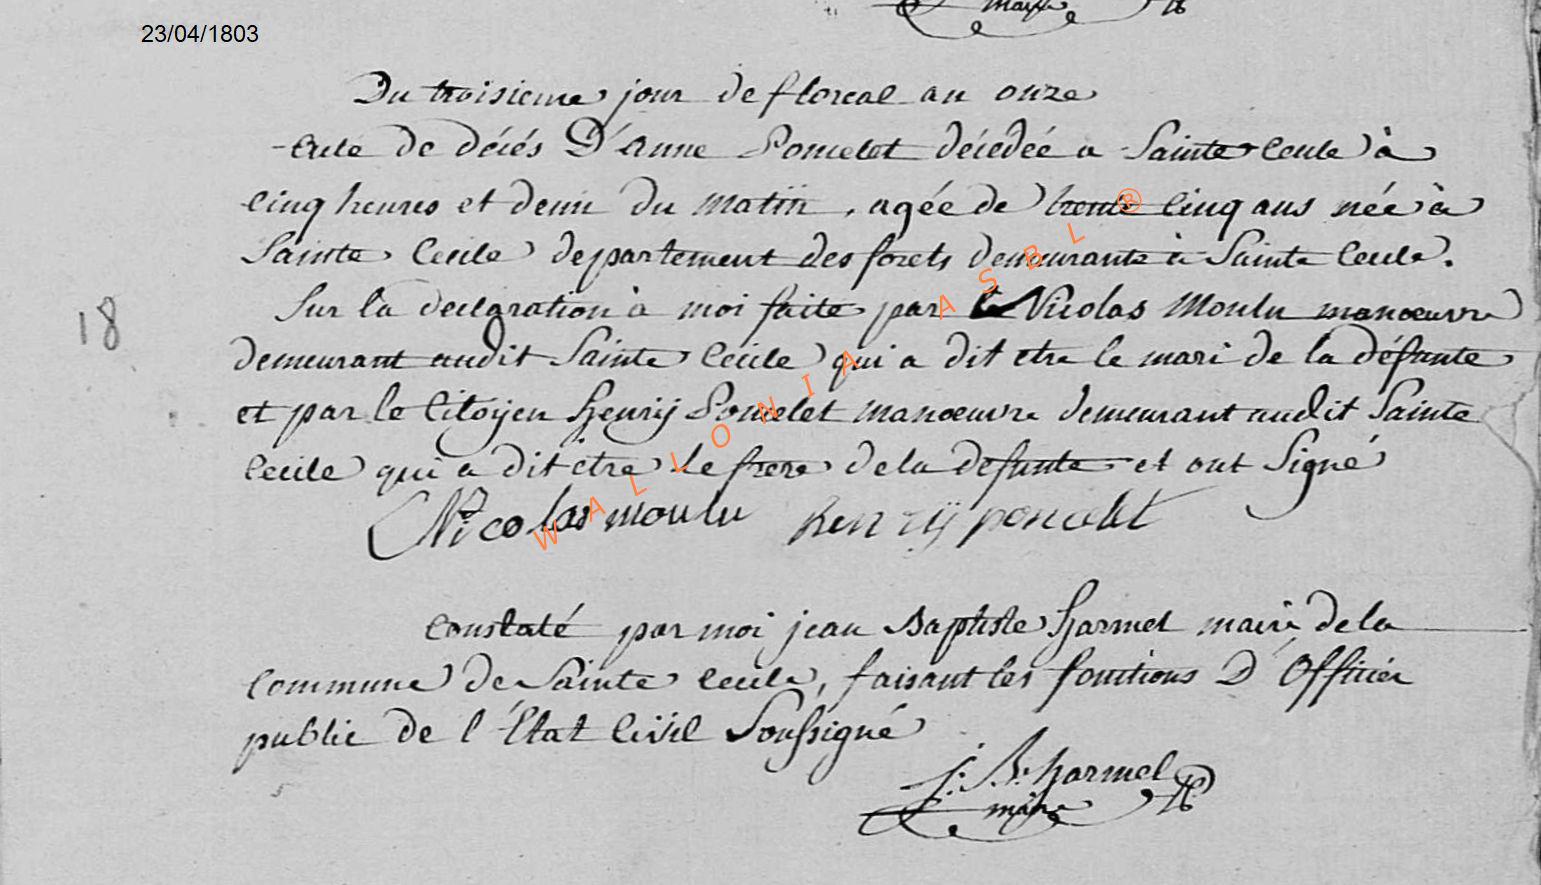 maire
23/04/1803
Du troisieme jour de floreal an onze
Acte de décés D'Anne Poncelet décédée a Sainte Cecile à
Cinq heures et demi du matin, agée de trente Cinq ans née à
Sainte Cecile departement des forets demeurante à Sainte Cecile.
18
Sur la declaration à moi faite par le Nicolas Moulu manoeuvre
demeurant audit Sainte Cecile qui a dit etre le mari de la défunte
et par le Citoyen Henrij Poncelet manoeuvre demeurant audit Sainte
Cecile qui a dit être le frere de la defunte et ont Signé
Nicolas moulu henrij poncelet
WALLONIA ASBL ®
Constaté par moi jean Baptiste Harmel maire de la
Commune de Sainte Cecile, faisant les fonctions D'Officier
public de l'État Civil Soussigné
J. B. harmel
maire